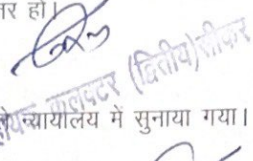 तर हो।
सहायक कलक्टर (द्वितीय) सीकर
न्यायालय में सुनाया गया।